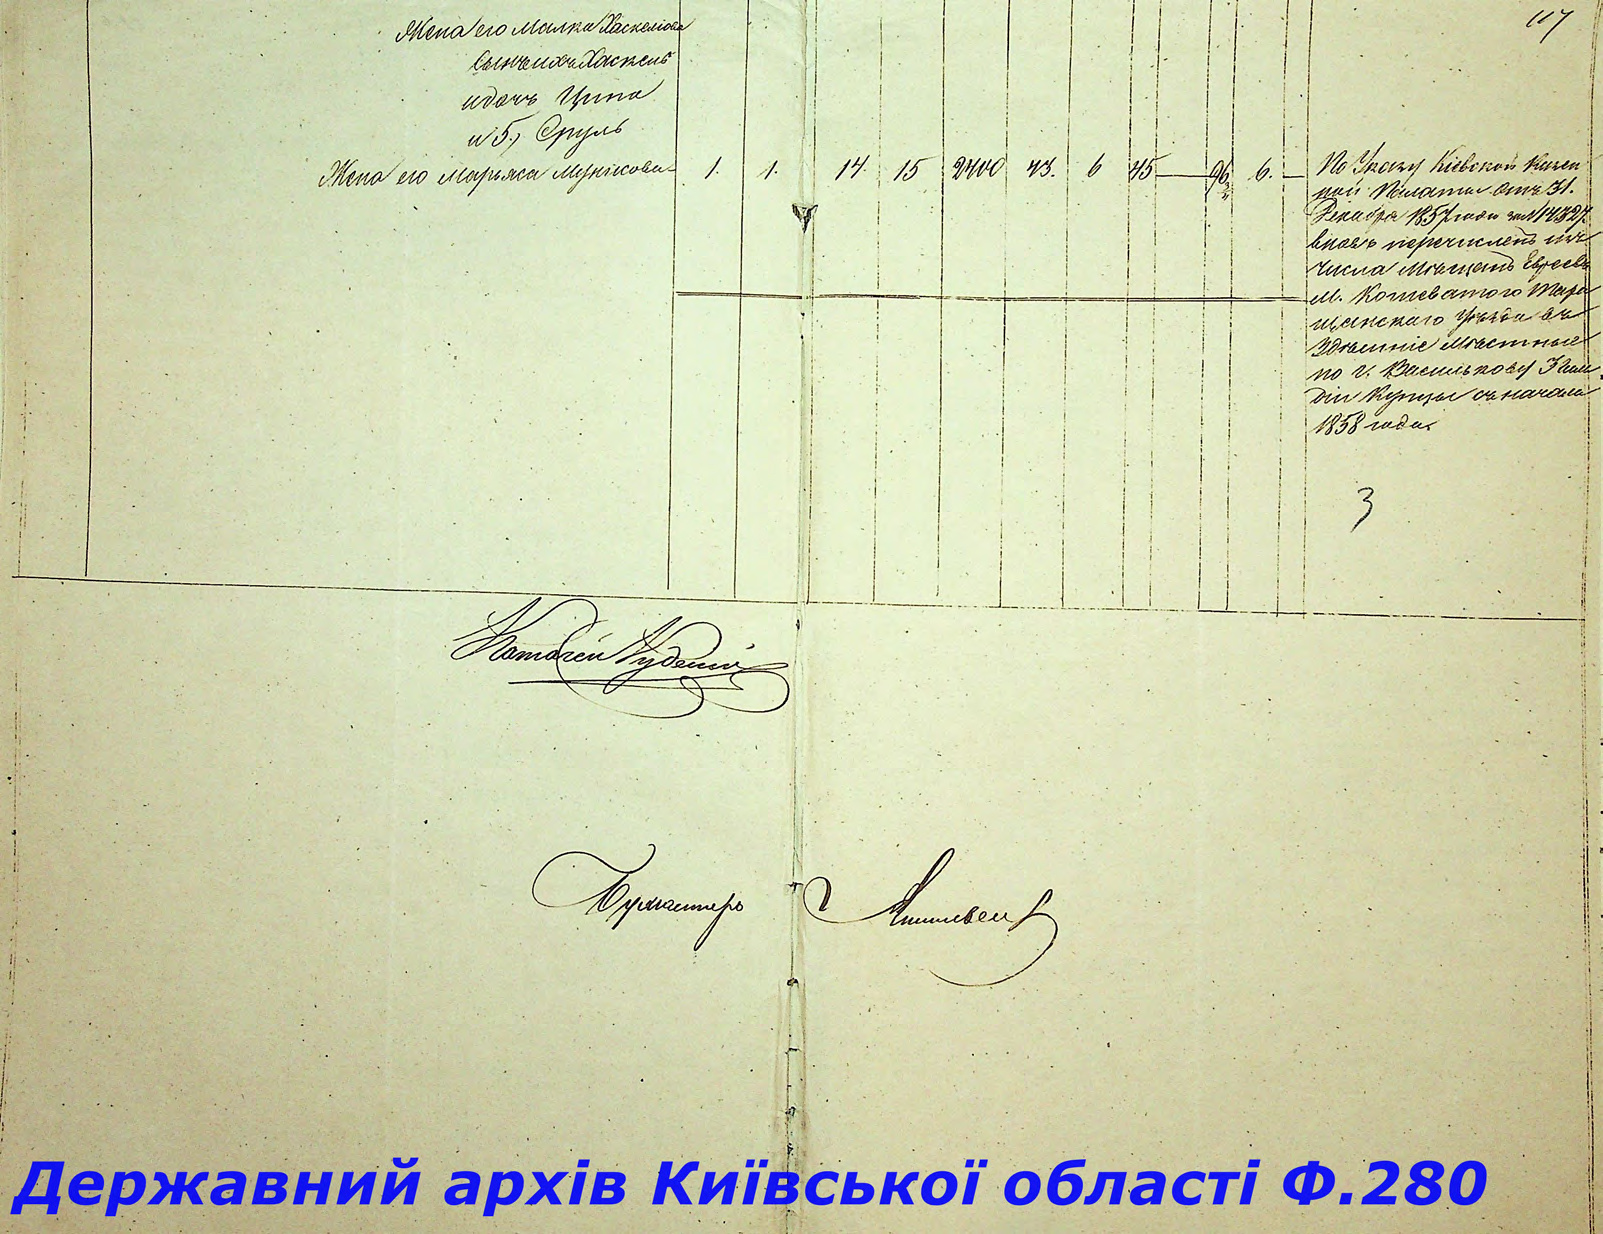 117
Жена его Малка Хаскелова
Сынъ ихъ Хаскель
и дочь Ципа
и 5., Сруль
Жена его Марьяса 1. 1. 14. 15 2400 43. 6 45 96 6.
По Указу Кіевской Казен
ной Палаты отъ 31.
Декабря 1857 года за № 14327.
вновь перечисленъ изъ
числа Мѣщанъ Евреевъ
М. Кошеватого Тара
щанскаго Уѣзда въ
здѣшніе Мѣстные
по г. Василькову 3 Гиль
діи Купцы съ начала
1858 года.
3
Бургмистръ
Державний архів Київської області Ф.280